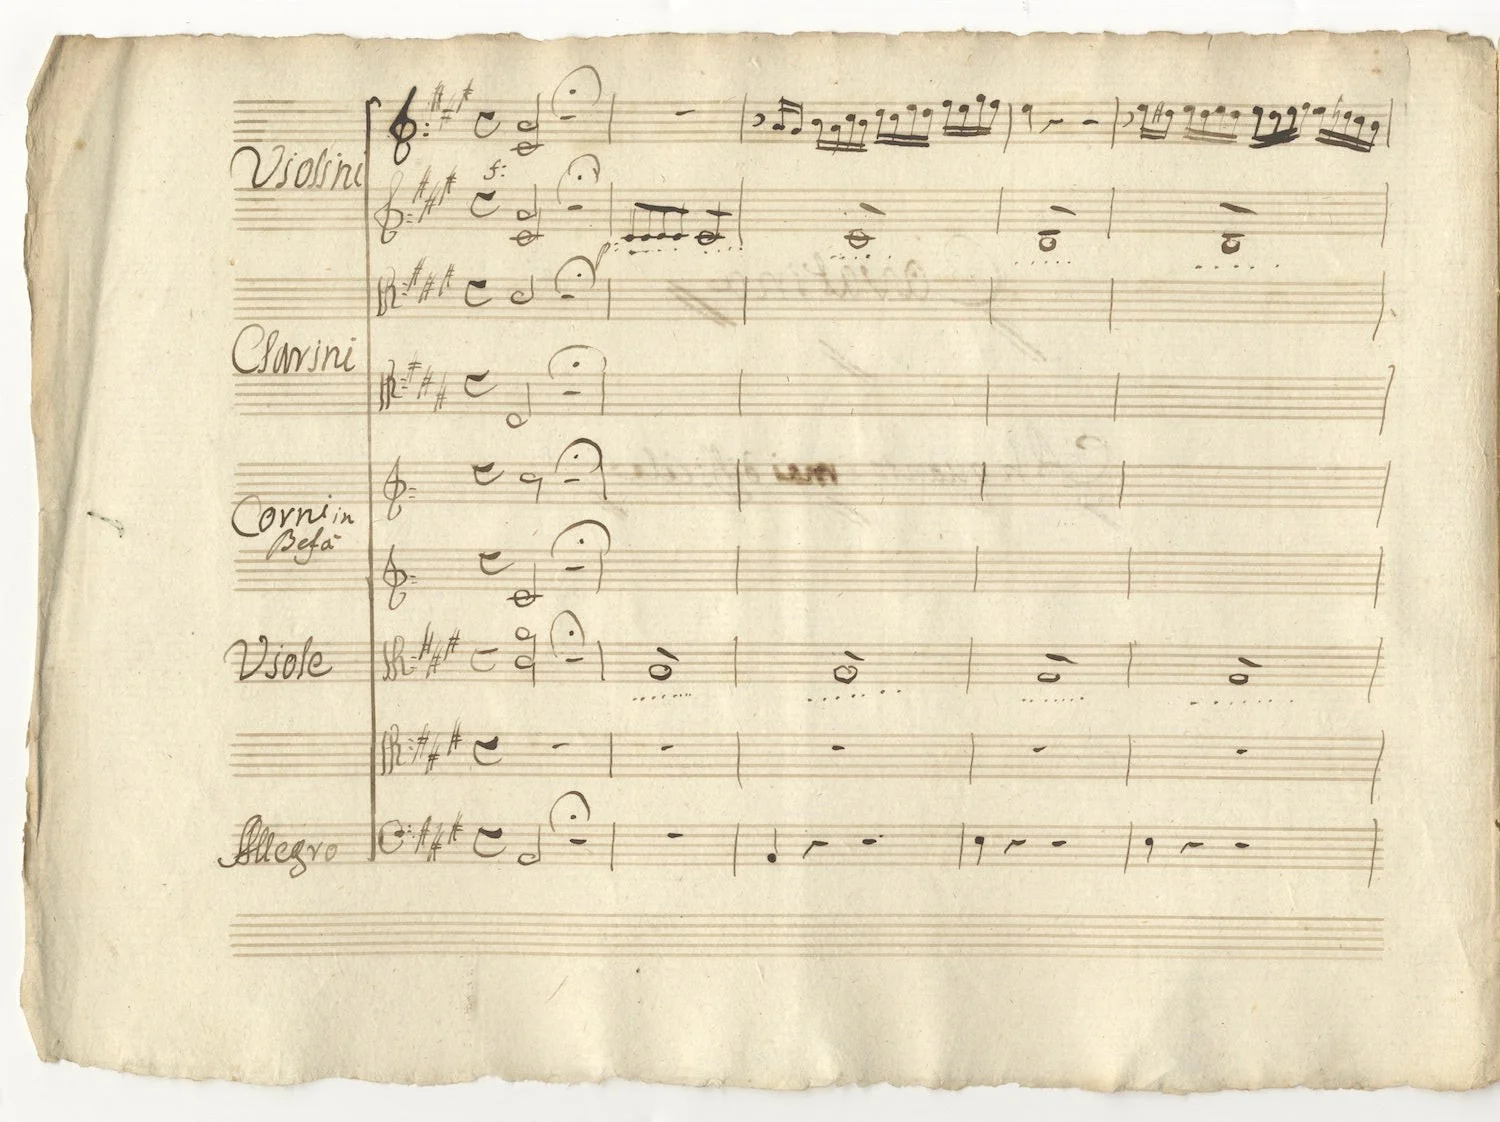 Violini
f:
p:
Clarini
Corni in
Befà
Viole
Allegro